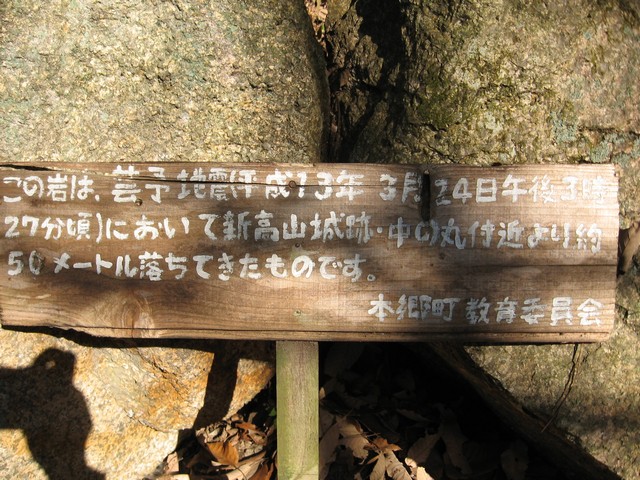 この岩は、芸予地震(平成13年 3月24日午後3時
27分頃)において新高山城跡・中の丸付近より約
50メートル落ちてきたものです。
本郷町教育委員会